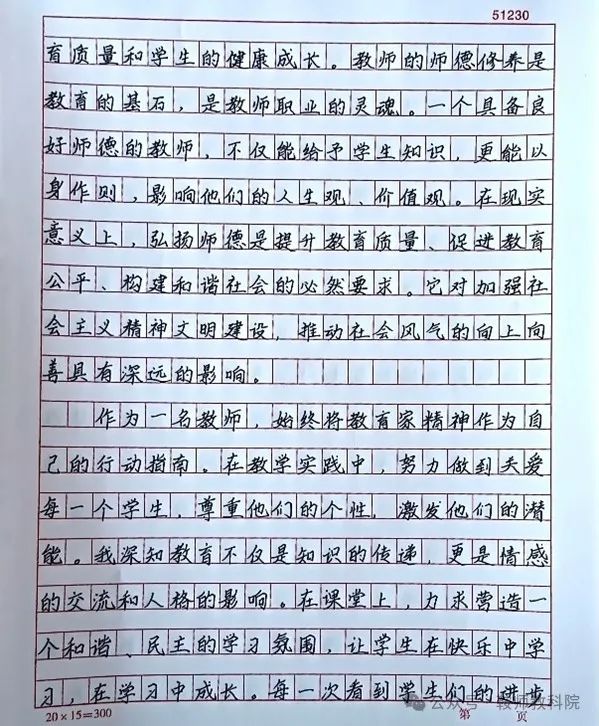 51230
育质量和学生的健康成长。教师的师德修养是
教育的基石，是教师职业的灵魂。一个具备良
好师德的教师，不仅能给予学生知识，更能以
身作则，影响他们的人生观、价值观。在现实
意义上，弘扬师德是提升教育质量、促进教育
公平、构建和谐社会的必然要求。它对加强社
会主义精神文明建设，推动社会风气的向上向
善具有深远的影响。
作为一名教师，始终将教育家精神作为自
己的行动指南。在教学实践中，努力做到关爱
每一个学生，尊重他们的个性，激发他们的潜
能。我深知教育不仅是知识的传递，更是情感
的交流和人格的影响。在课堂上，力求营造一
个和谐、民主的学习氛围，让学生在快乐中学
习，在学习中成长。每一次看到学生们的进步
20×15=300
第 页
公众号·鞍师教科院